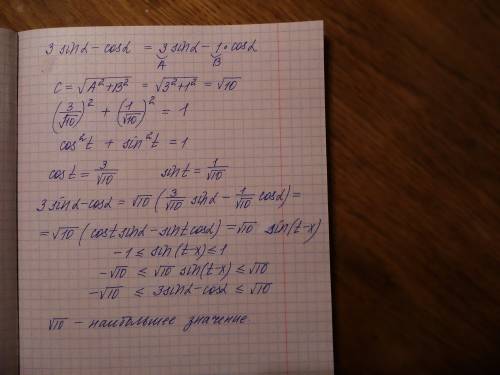 3 sinα – cosα = 3 sinα – 1 · cosα
A B
C = √A²+B² = √3²+1² = √10
(3/√10)² + (1/√10)² = 1
cos²t + sin²t = 1
cos t = 3/√10 sin t = 1/√10
3 sinα – cosα = √10 (3/√10 sinα – 1/√10 cosα) =
= √10 (cost sinα – sint cosα) = √10 sin(t-x)
-1 ≤ sin(t-x) ≤ 1
-√10 ≤ √10 sin(t-x) ≤ √10
-√10 ≤ 3sinα – cosα ≤ √10
√10 – наибольшее значение